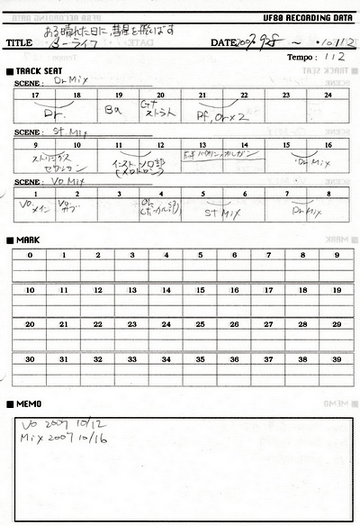 UF80 RECORDING DATA
ある晴れた日に、彗星を飛ばす
TITLE β-ライフ DATE ~ 10/12
Tempo : 112
■ TRACK SEAT
SCENE : Dr Mix
17 18 19 20 21 22 23 24
Dr. Ba Gt ストラト Pf, Or×2
SCENE : ST. Mix
9 10 11 12 13 14 15 16
ストリングス セクション Dr Mix
SCENE : Vo Mix
1 2 3 4 5 6 7 8
Vo. メイン Vo. サブ ST Mix Dr Mix
■ MARK
0 1 2 3 4 5 6 7 8 9
10 11 12 13 14 15 16 17 18 19
20 21 22 23 24 25 26 27 28 29
30 31 32 33 34 35 36 37 38 39
■ MEMO
Vo 2007 10/12
Mix 2007 10/16